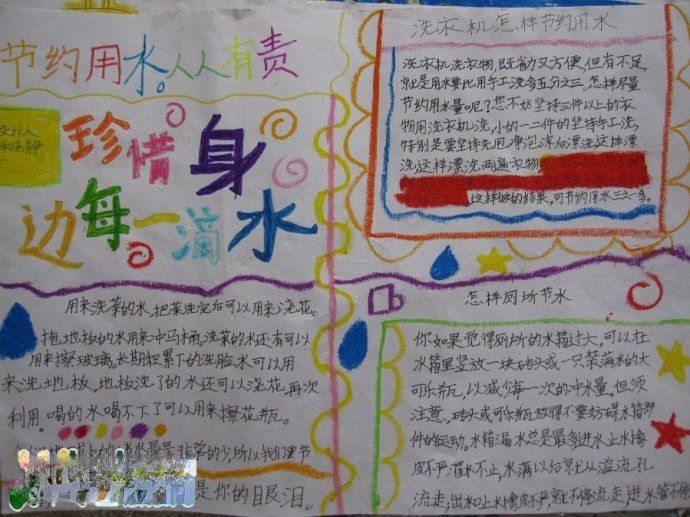 节约用水。人人有责
珍惜身
边每一滴水
用来洗菜的水,把菜洗完后可以用来浇花。
拖地板的水用来冲马桶,洗菜的水还有可以
用来擦玻璃。长期积累下的洗脸水可以用
来洗地板,地板洗了的水还可以浇花,再次
利用。喝的水喝不下了可以用来擦花瓶。
非常的少,所以我们要节
是你的眼泪。
洗衣机怎样节约用水
洗衣机洗衣物,既省力又方便,但有不足,
就是用水要比用手工洗多五分之三。怎样尽量
节约用水量呢?您不妨坚持三件以上的衣
物用洗衣机洗,小的一二件的坚持手工洗,
特别是要坚持先甩净泡沫后漂洗这样漂
洗这样漂洗两遍衣物。
这样做的结果,可节约用水三之一多。
怎样厕所节水
你如果觉得厕所的水箱过大,可以在
水箱里竖放一块砖头或一只装满水的大
可乐瓶,以减少每一次的冲水量。但须
注意,砖头或可乐瓶放得不要妨碍水箱部
件的运动。水箱漏水总是最多进水止水橡
皮不严灌水不止,水满以后就从溢流孔
流走,出水口止水橡皮不严,就不停流走,进水管不停